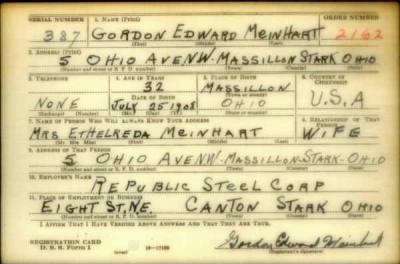 SERIAL NUMBER 1. NAME (Print) ORDER NUMBER
387 GORDON EDWARD MEINHART 2162
(First) (Middle) (Last)
2. ADDRESS (Print)
5 OHIO AVE NW. MASSILLON STARK OHIO
(Number and street or R. F. D. number) (Town) (County) (State)
3. TELEPHONE 4. AGE IN YEARS 5. PLACE OF BIRTH 6. COUNTRY OF CITIZENSHIP
32 MASSILLON
DATE OF BIRTH (Town or county)
NONE JULY 25 1908 OHIO U.S.A
7. NAME OF PERSON WHO WILL ALWAYS KNOW YOUR ADDRESS 8. RELATIONSHIP OF THAT PERSON
MRS ETHELREDA MEINHART WIFE
(Mr. Mrs. Miss) (First) (Middle) (Last)
9. ADDRESS OF THAT PERSON
5 OHIO AVE NW- MASSILLON-STARK-OHIO
(Number and street or R. F. D. number) (Town) (County) (State)
10. EMPLOYER'S NAME
REPUBLIC STEEL CORP
11. PLACE OF EMPLOYMENT OR BUSINESS
EIGHT ST, NE. CANTON STARK OHIO
(Number and street or R. F. D. number) (Town) (County) (State)
I AFFIRM THAT I HAVE VERIFIED ABOVE ANSWERS AND THAT THEY ARE TRUE.
REGISTRATION CARD
D. S. S. Form 1 (over) Gordon Edward Meinhart
(Registrant's signature)